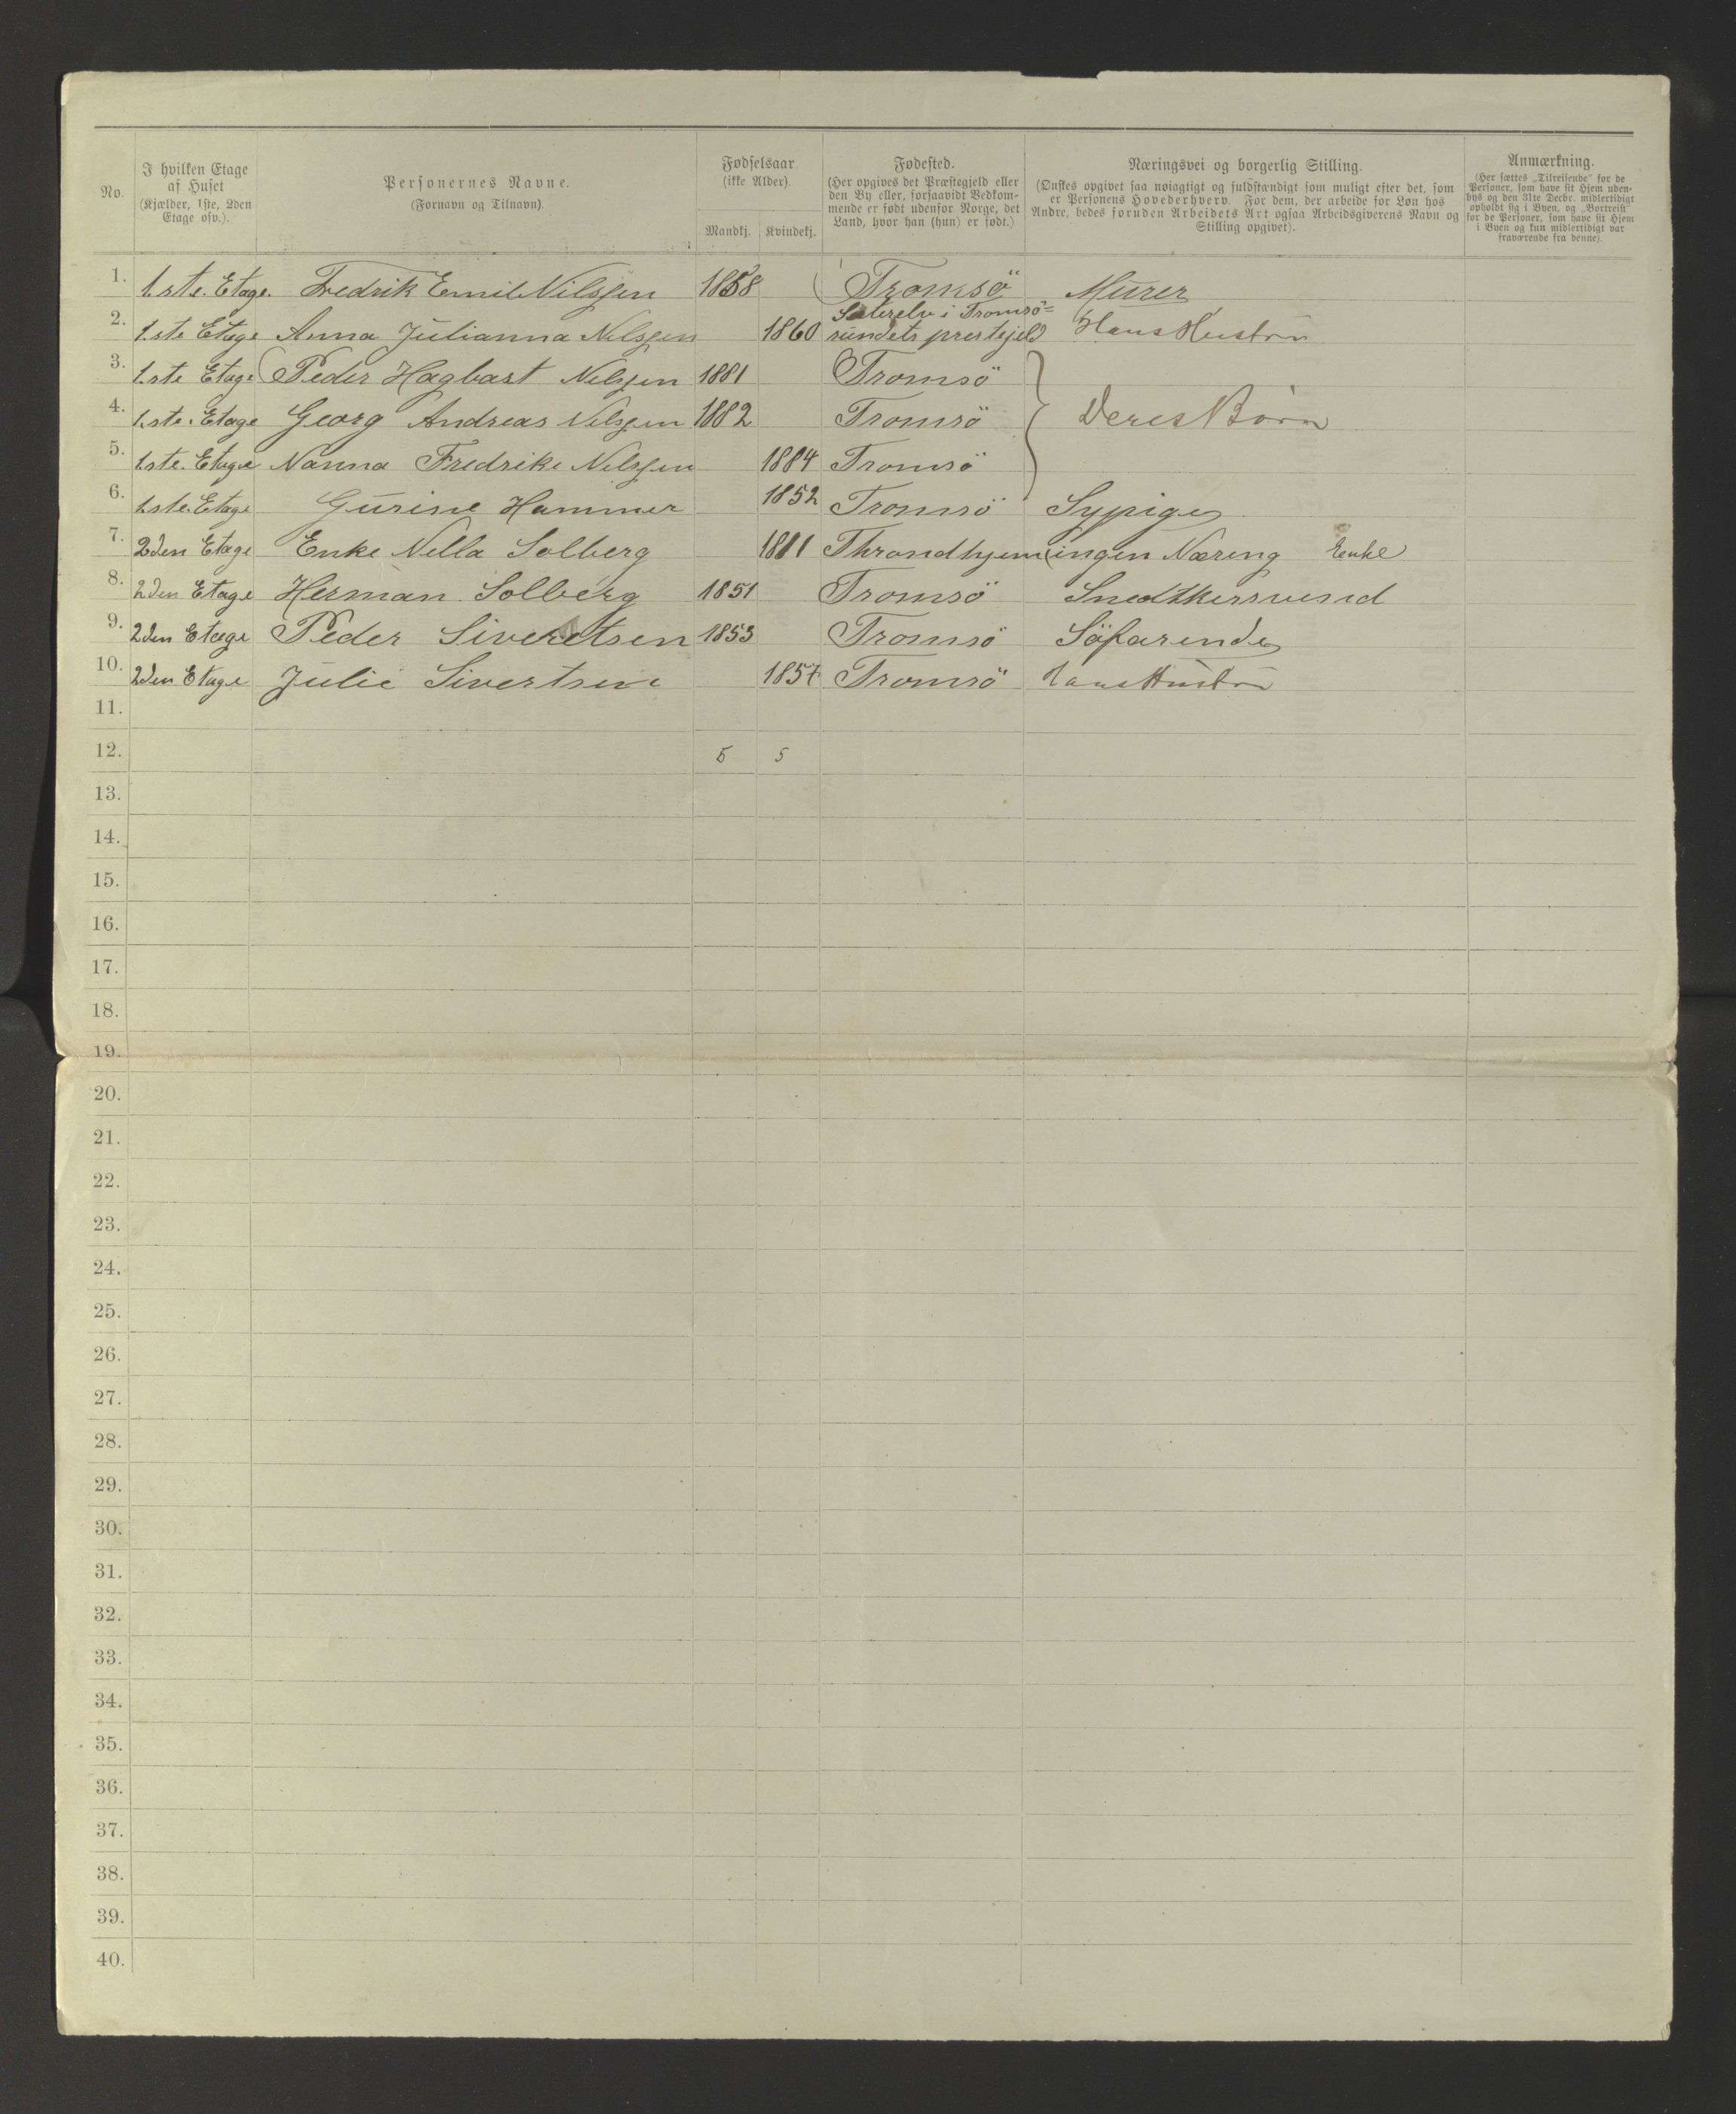 No.
I hvilken Etage
af Huset
(Kjælder, 1ste, 2den
Etage osv.).
Personernes Navne.
(Fornavn og Tilnavn).
Fødselsaar
(ikke Alder).
Mandkj. Kvindekj.
Fødested.
(Her opgives det Præstegjeld eller
den By eller, forsaavidt Vedkom-
mende er født udenfor Norge, det
Land, hvor han (hun) er født.)
Næringsvei og borgerlig Stilling.
(Ønskes opgivet saa nøiagtigt og fuldstændigt som muligt efter det, som
er Personens Hovederhverv. For dem, der arbeide for Løn hos
Andre, bedes foruden Arbeidets Art ogsaa Arbeidsgiverens Navn og
Stilling opgivet).
Anmærkning.
(Her sættes „Tilreisende“ for de
Personer, som have sit Hjem uden-
bys og den 31te Decbr. midlertidigt
opholdt sig i Byen, og „Bortreist“
for de Personer, som have sit Hjem
i Byen og kun midlertidigt var
fraværende fra denne).
1. 1.ste. Etage. Fredrik Emil Nilssen 1858 Tromsö Murer
2. 1.ste Etage Anna Julianna Nilssen 1860 Säterelv i Tromsö=
sundets prestejeld Hans Hustru
3. 1.ste Etage Peder Hagbart Nilssen 1881 Tromsö
4. 1.ste. Etage Georg Andreas Nilssen 1882 Tromsö Deres Börn
5. 1.ste. Etage Nanna Fredrike Nilssen 1884 Tromsö
6. 1.ste. Etage Gurine Hammer 1852 Tromsö Sypige
7. 2den Etage Enke Nella Solberg 1811 Throndhjem ingen Næring Enke
8. 2den Etage Herman Solberg 1851 Tromsö Snedkersvend
9. 2den Etage Peder Sivertsen 1853 Tromsö Söfarende
10. 2den Etage Julie Sivertsen 1857 Tromsö Hans Hustru
11.
12. 5 5
13.
14.
15.
16.
17.
18.
19.
20.
21.
22.
23.
24.
25.
26.
27.
28.
29.
30.
31.
32.
33.
34.
35.
36.
37.
38.
39.
40.